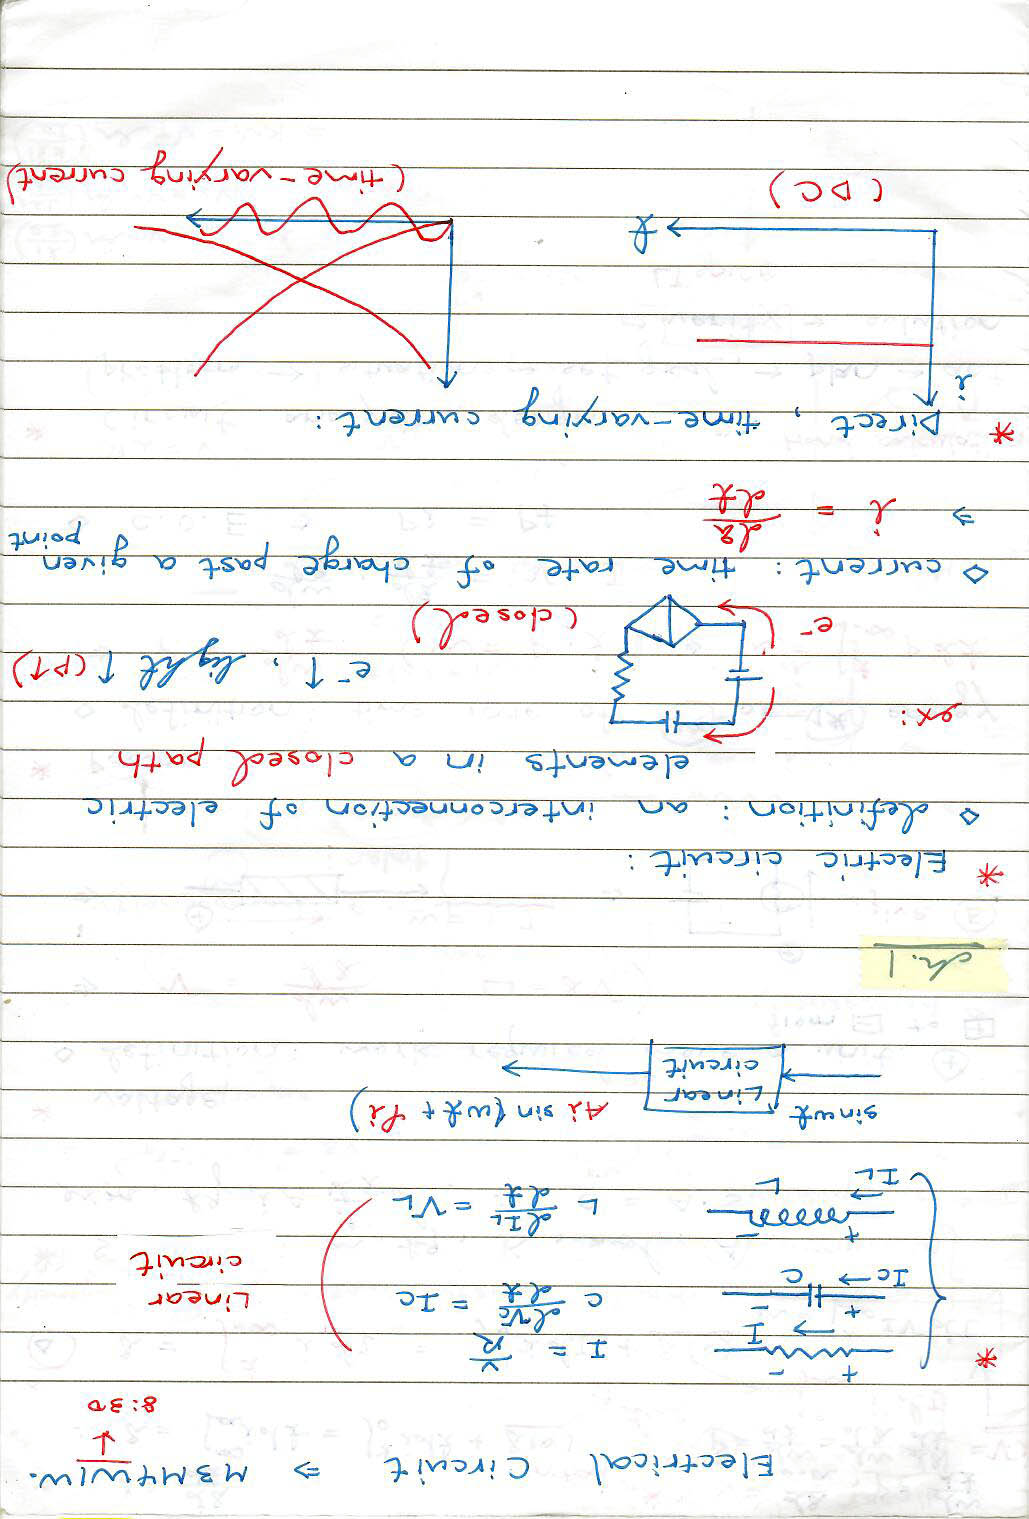 Electrical Circuit ⇒ M3M4W1W.
8:30
* + - I I = V/R
+ - Ic C C dVc/dt = Ic Linear circuit
+ - IL L L dIL/dt = VL
sinωt Linear circuit Ai sin(ωt + φi)
ch. 1
* Electric circuit :
◇ definition : an interconnection of electric
elements in a closed path
ex: e⁻ (closed) e⁻↑, light ↑ (P↑)
◇ current : time rate of charge past a given point
⇒ i = dq/dt
* Direct , time-varying current :
i t
(DC) (time-varying current)